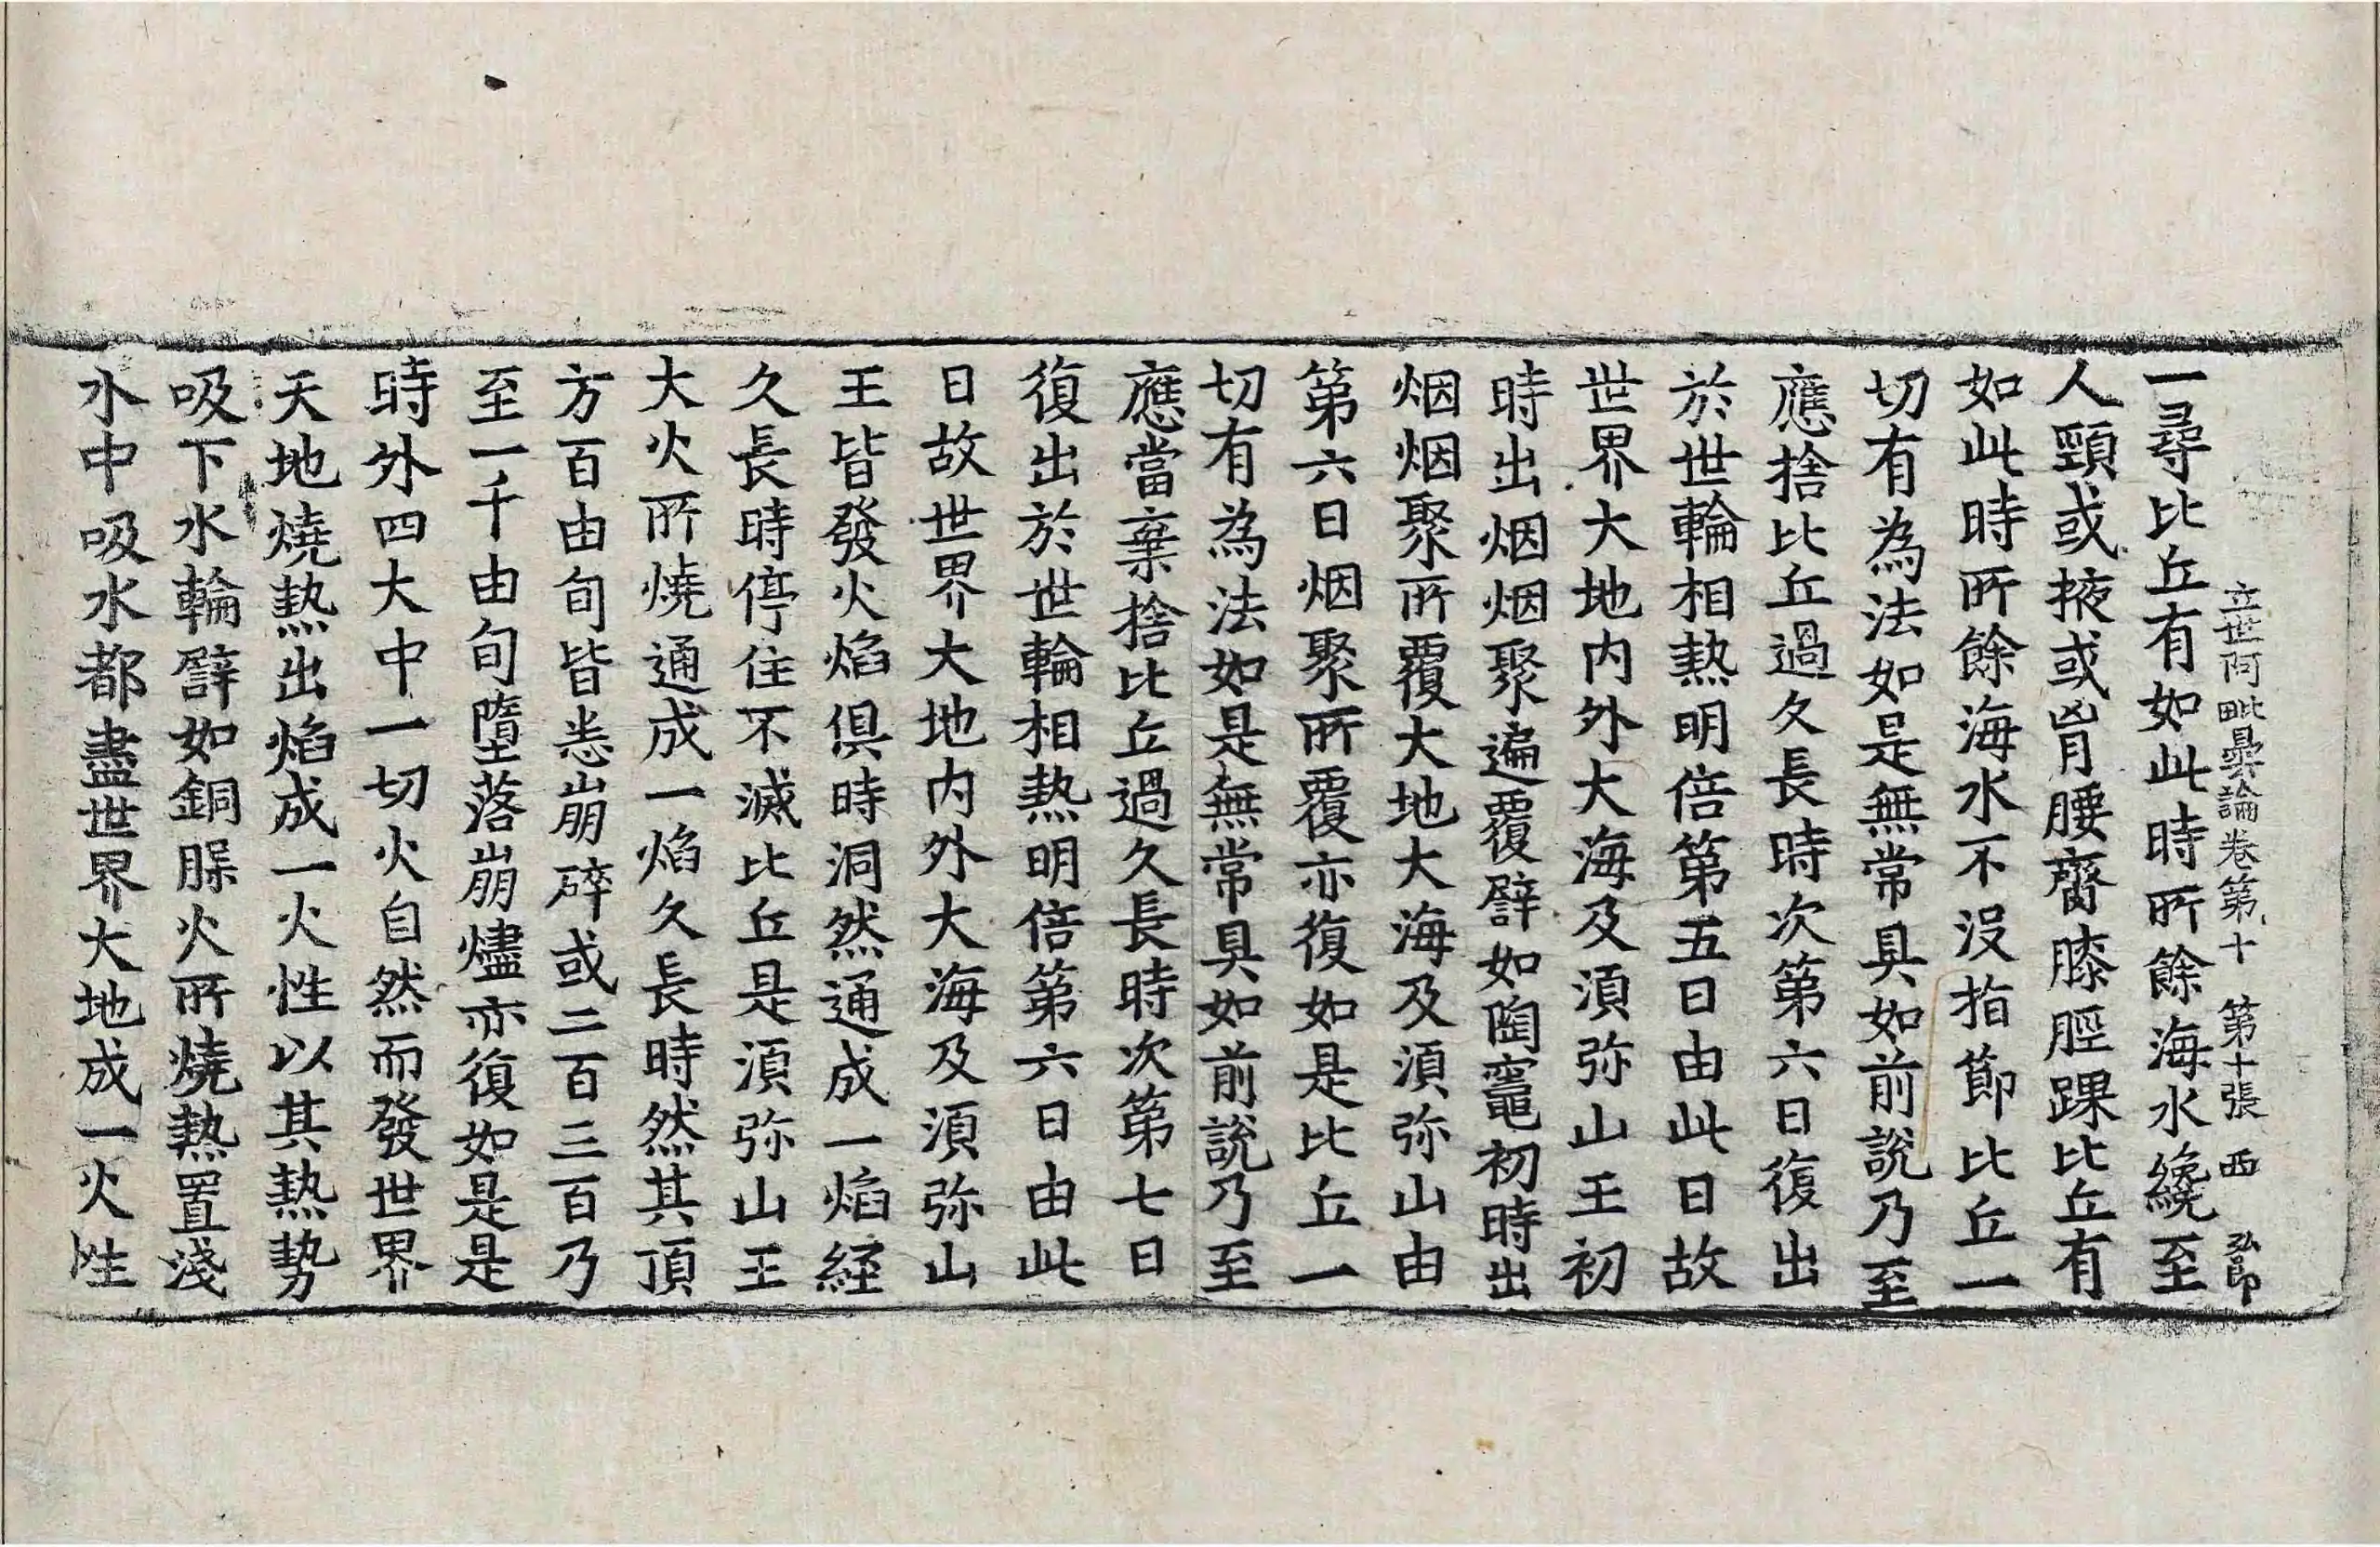 立世阿毗曇論卷第十 第十張 西 弘卽
一尋比丘有如此時所餘海水纔至
人頸或掖或胷腰齎膝脛踝比丘有
如此時所餘海水不沒指節比丘一
切有為法如是無常具如前說乃至
應捨比丘過久長時次第六日復出
於世輪相熱明倍第五日由此日故
世界大地内外大海及湏弥山王初
時出烟烟聚遍覆譬如陶竈初時出
烟烟聚所覆大地大海及湏弥山由
第六日烟聚所覆亦復如是比丘一
切有為法如是無常具如前說乃至
應當棄捨比丘過久長時次第七日
復出於世輪相熱明倍第六日由此
日故世界大地内外大海及湏弥山
王皆發火焰俱時洞然通成一焰経
久長時停住不滅比丘是湏弥山王
大火所燒通成一焰久長時然其頂
方百由旬皆悉崩碎或二百三百乃
至一千由旬墮落崩燼亦復如是是
時外四大中一切火自然而發世界
天地燒熱出焰成一火性以其熱勢
吸下水輪譬如銅腂火所燒熱置淺
水中吸水都盡世界大地成一火性